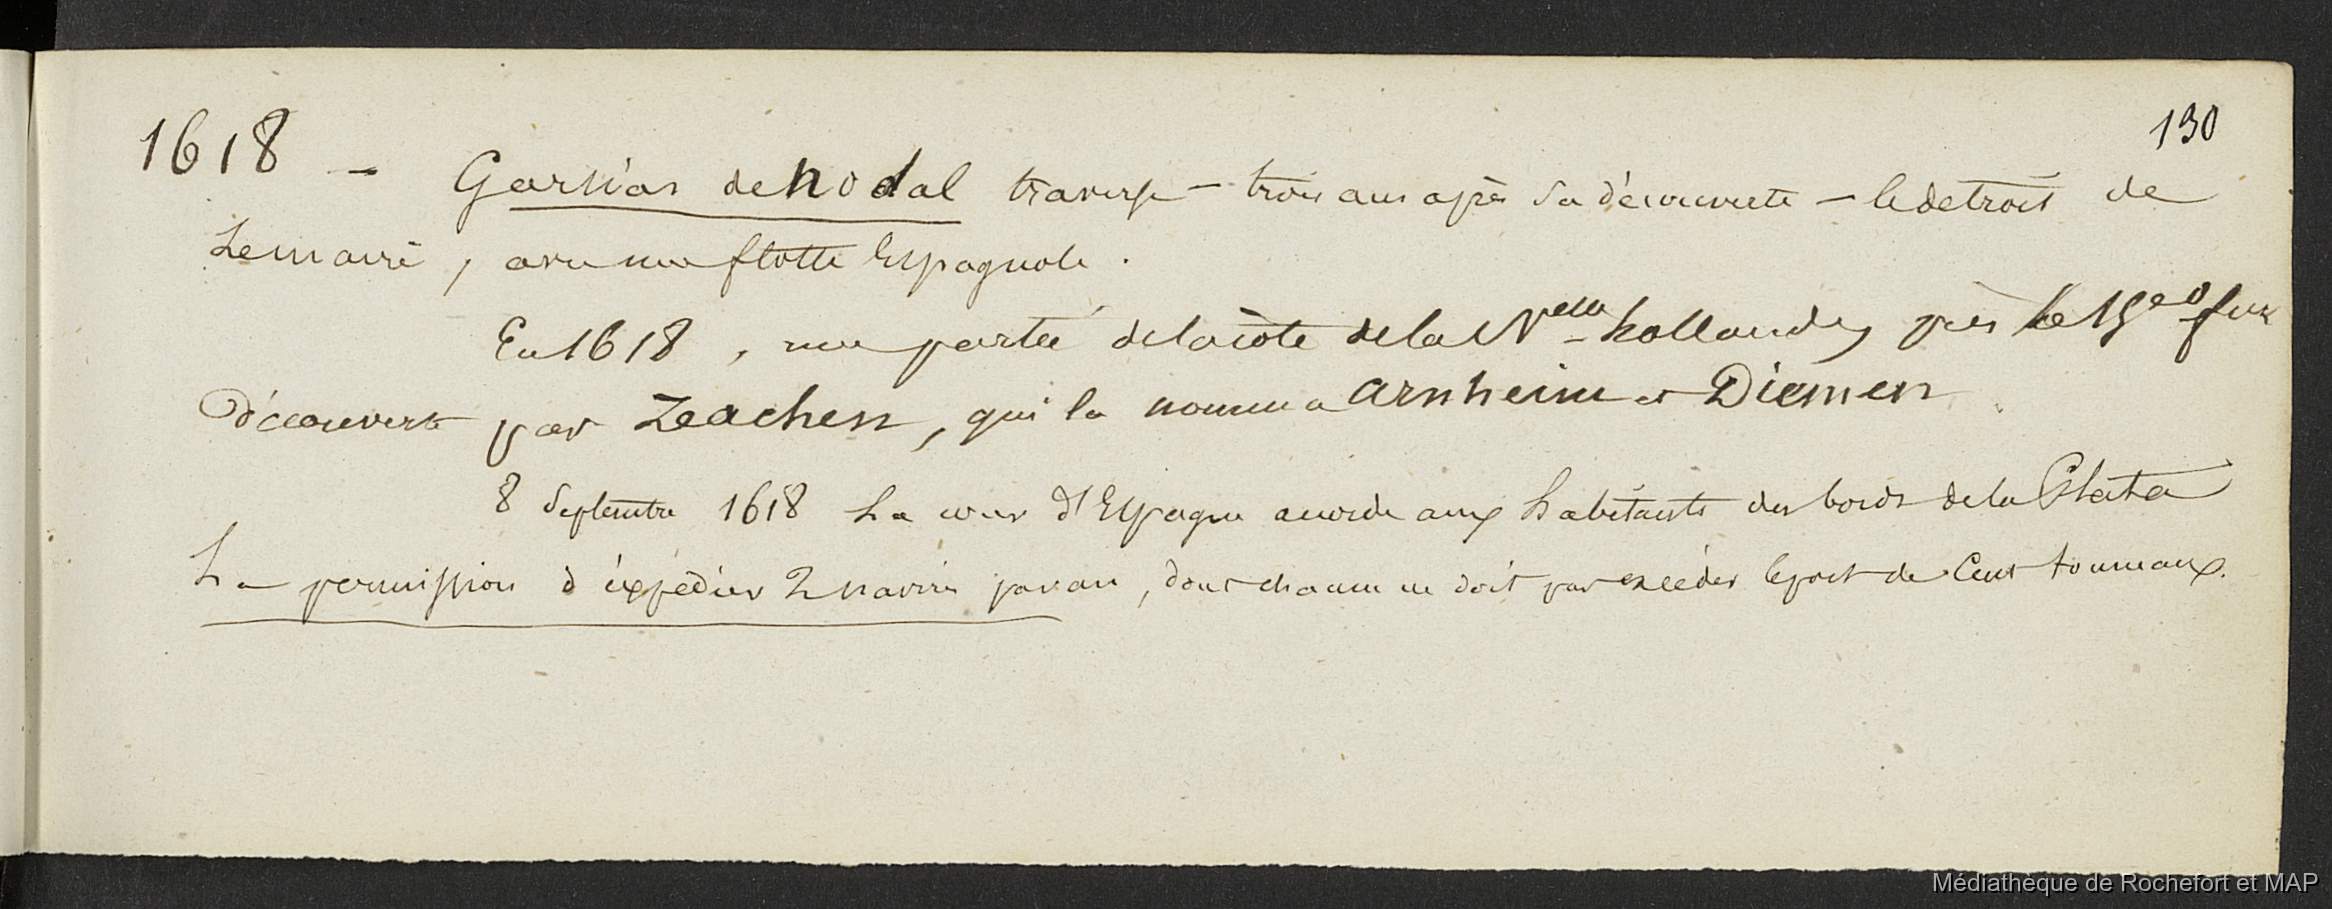 130
1618 - Garsias de Nodal traverse - trois ans après sa découverte - le detroit de
Lemaire, avec une flotte Espagnole.
En 1618, une partie de la côte de la Nelle hollande, près le 15e fut
découverte par Zeachen, qui la nomma Arnheim et Diemen
8 Septembre 1618 La cour d'Espagne accorde aux habitants des bords de la Plata
La permission d'éxpédier 2 navires par an, dont chacun ne doit pas excéder le port de Cent tonneaux.
Médiathèque de Rochefort et MAP